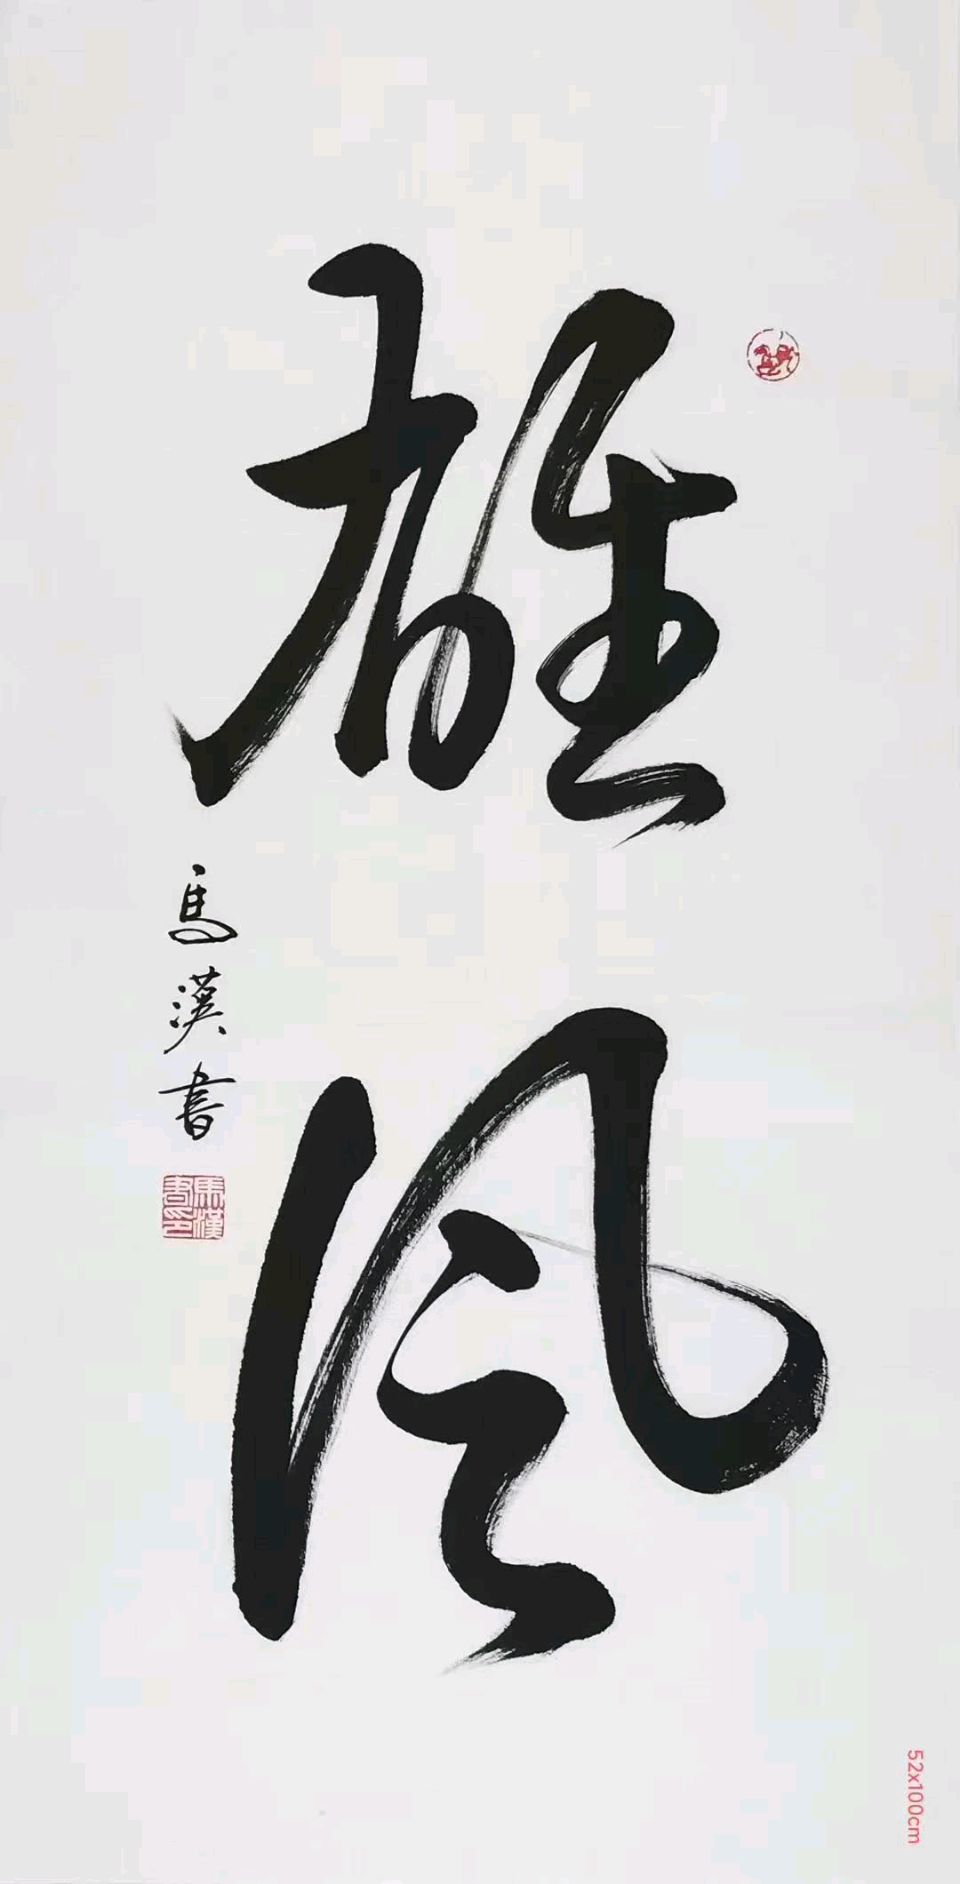 雄风
馬漢書
馬漢書印
52x100cm